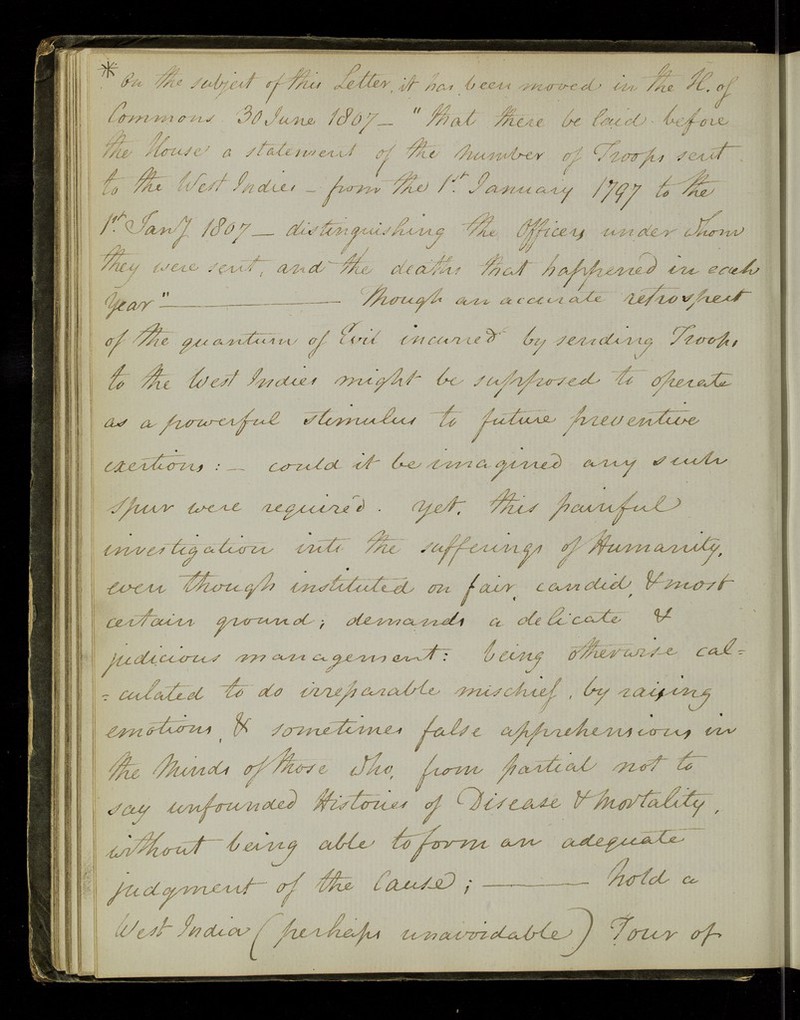 * On the subject of this Letter, it has been moved in the H. of
Commons 30 June 1807 — "that there be laid before
the House a statement of the number of Troops sent
to the West Indies – from the 1st January 1797 to the
1st Jany 1807 — distinguishing the Officers under whom
they were sent, and the deaths that happened in each
year" ——— Though an accurate retrospect
of the quantum of Evil incurred by sending Troops
to the West Indies might be supposed to operate
as a powerful stimulus to future preventive
exertions : — could it be imagined any such
spur were required. yet, this painful
investigation into the sufferings of Humanity,
even though instituted on fair, candid, & most
certain ground; demands a delicate &
judicious management: being otherwise cal=
=culated to do irreparable mischief, by raising
emotions, & sometimes false apprehensions in
the Minds of those who, from partial not to
say unfounded Histories of Disease & Mortality,
without being able to form an adequate
judgment of the Cause; ——— hold a
West India (perhaps unavoidable) Tour of